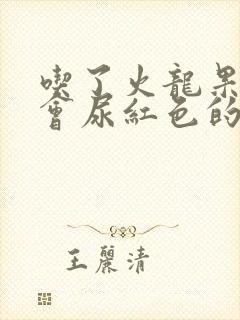 喫了火龍果
會尿紅色的
王麗清